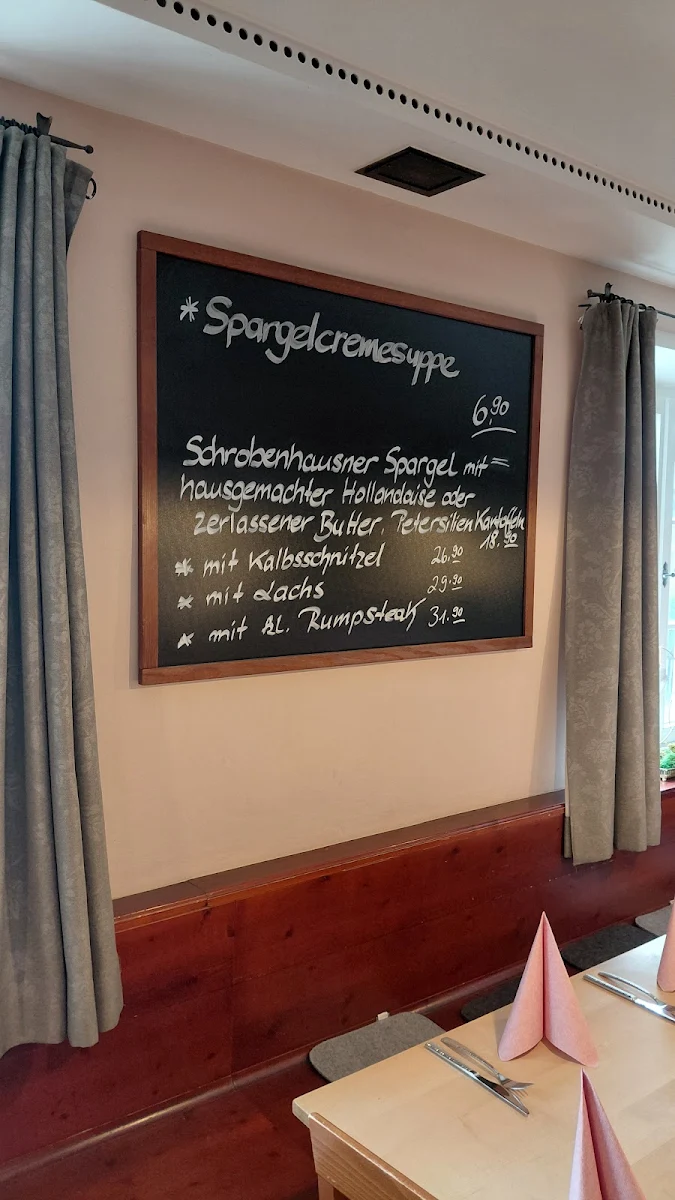 *Spargelcremesuppe
6,90
Schrobenhausner Spargel mit
hausgemachter Hollandaise oder
zerlassener Butter, Petersilien Kartoffeln
18.90
* mit Kalbsschnitzel 26.90
* mit Lachs 29.90
* mit kl. Rumpsteak 31.90